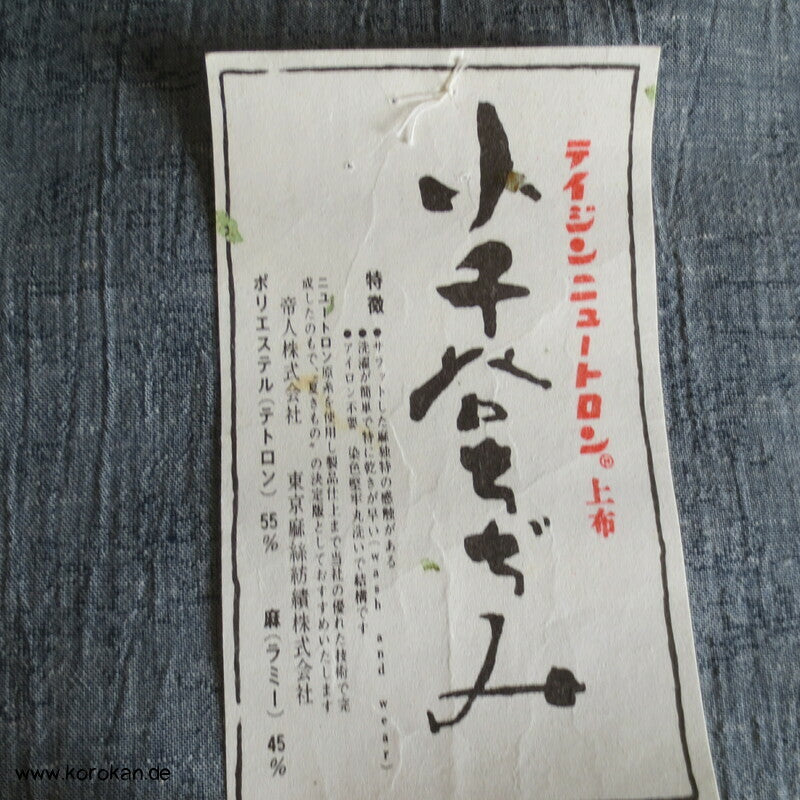 テイジンニュートロン®上布
小千谷ちぢみ
特徴
●サラットした麻独特の感触がある
●洗濯が簡単で特に乾きが早い(wash and wear)
●アイロン不要 染色堅牢丸洗いで結構です
ニュートロン原糸を使用し製品仕上まで当社の優れた技術で完
成したのもで〝夏きもの〟の決定版としておすすめいたします
帝人株式会社 東京麻絲紡績株式会社
ポリエステル(テトロン) 55% 麻(ラミー) 45%
www.korokan.de